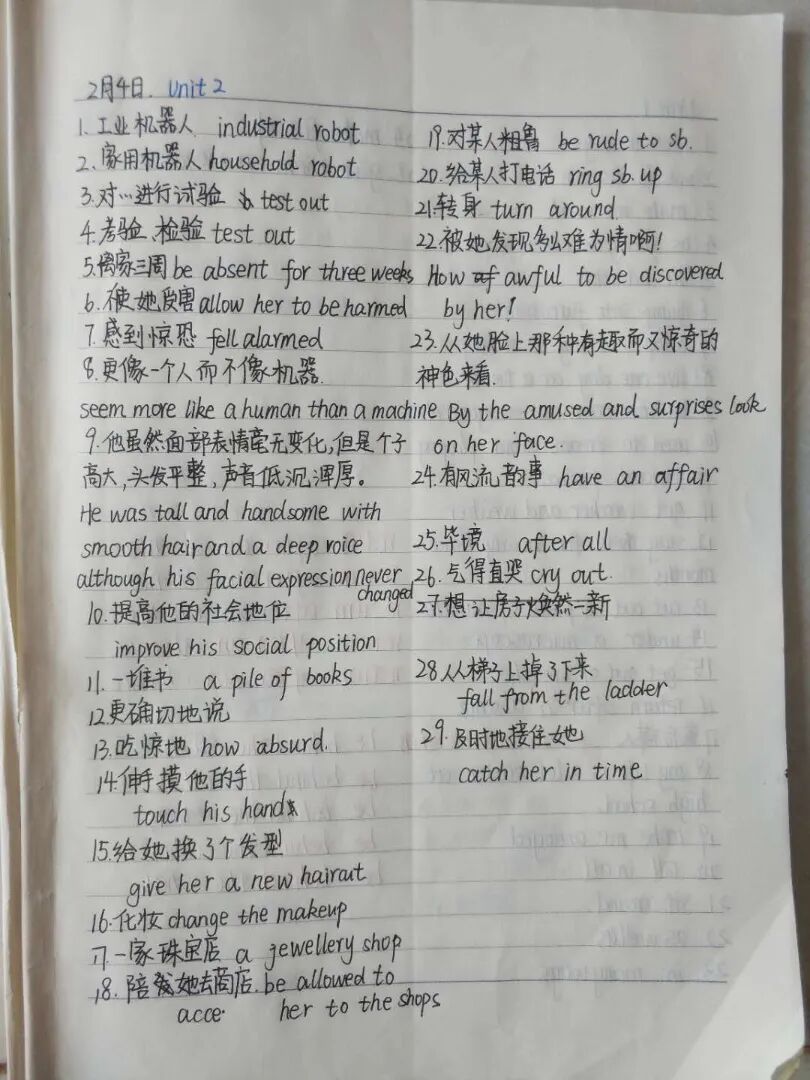 2月4日. Unit 2
1. 工业机器人 industrial robot
2. 家用机器人 household robot
3. 对…进行试验 test out
4. 考验、检验 test out
5. 离家三周 be absent for three weeks
6. 使她受害 allow her to be harmed
7. 感到惊恐 fell alarmed
8. 更像一个人而不像机器.
seem more like a human than a machine
9. 他虽然面部表情毫无变化,但是个子
高大,头发平整,声音低沉浑厚。
He was tall and handsome with
smooth hair and a deep voice
although his facial expression never
changed
10. 提高他的社会地位
improve his social position
11. 一堆书 a pile of books
12 更确切地说
13. 吃惊地 how absurd.
14. 伸手摸他的手
touch his hand
15. 给她换了个发型
give her a new haircut
16. 化妆 change the makeup
17. 一家珠宝店 a jewellery shop
18. 陪她去商店. be allowed to
acce. her to the shops
19. 对某人粗鲁 be rude to sb.
20. 给某人打电话 ring sb. up
21. 转身 turn around.
22. 被她发现多么难为情啊!
How awful to be discovered
by her!
23. 从她脸上那种有趣而又惊奇的
神色来看.
By the amused and surprises look
on her face.
24. 有风流韵事 have an affair
25. 毕境 after all
26. 气得直哭 cry out.
27. 想让房子焕然一新
28 从梯子上掉了下来
fall from the ladder
29. 及时地接住她
catch her in time